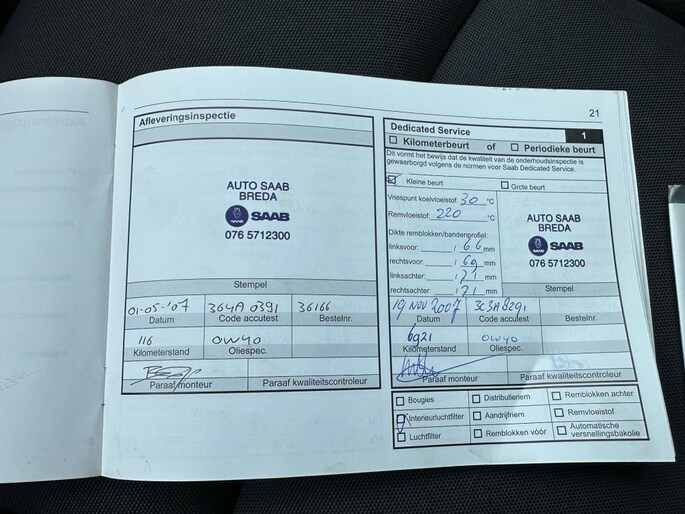 21
Afleveringsinspectie
AUTO SAAB
BREDA
SAAB
076 5712300
Stempel
01-05-'07 364A 0391 36166
Datum Code accutest Bestelnr.
116 0W40
Kilometerstand Oliespec.
Paraaf monteur Paraaf kwaliteitscontroleur
Dedicated Service 1
Kilometerbeurt of Periodieke beurt
Dit vormt het bewijs dat de kwaliteit van de onderhoudsinspectie is
gewaarborgd volgens de normen voor Saab Dedicated Service.
Kleine beurt Grote beurt
Vriespunt koelvloeistof: 30 °C
Remvloeistof: 220 °C
Dikte remblokken/bandenprofiel:
linksvoor: / 6.6 mm
rechtsvoor: / 6.9 mm
linksachter: / 7.1 mm
rechtsachter: / 7.1 mm
AUTO SAAB
BREDA
SAAB
076 5712300
Stempel
19 NOV 2007 3C3A8291
Datum Code accutest Bestelnr.
6921 0W40
Kilometerstand Oliespec.
Paraaf monteur Paraaf kwaliteitscontroleur
Bougies Distributieriem Remblokken achter
Interieurluchtfilter Aandrijfriem Remvloeistof
Luchtfilter Remblokken vóór Automatische
versnellingsbakolie